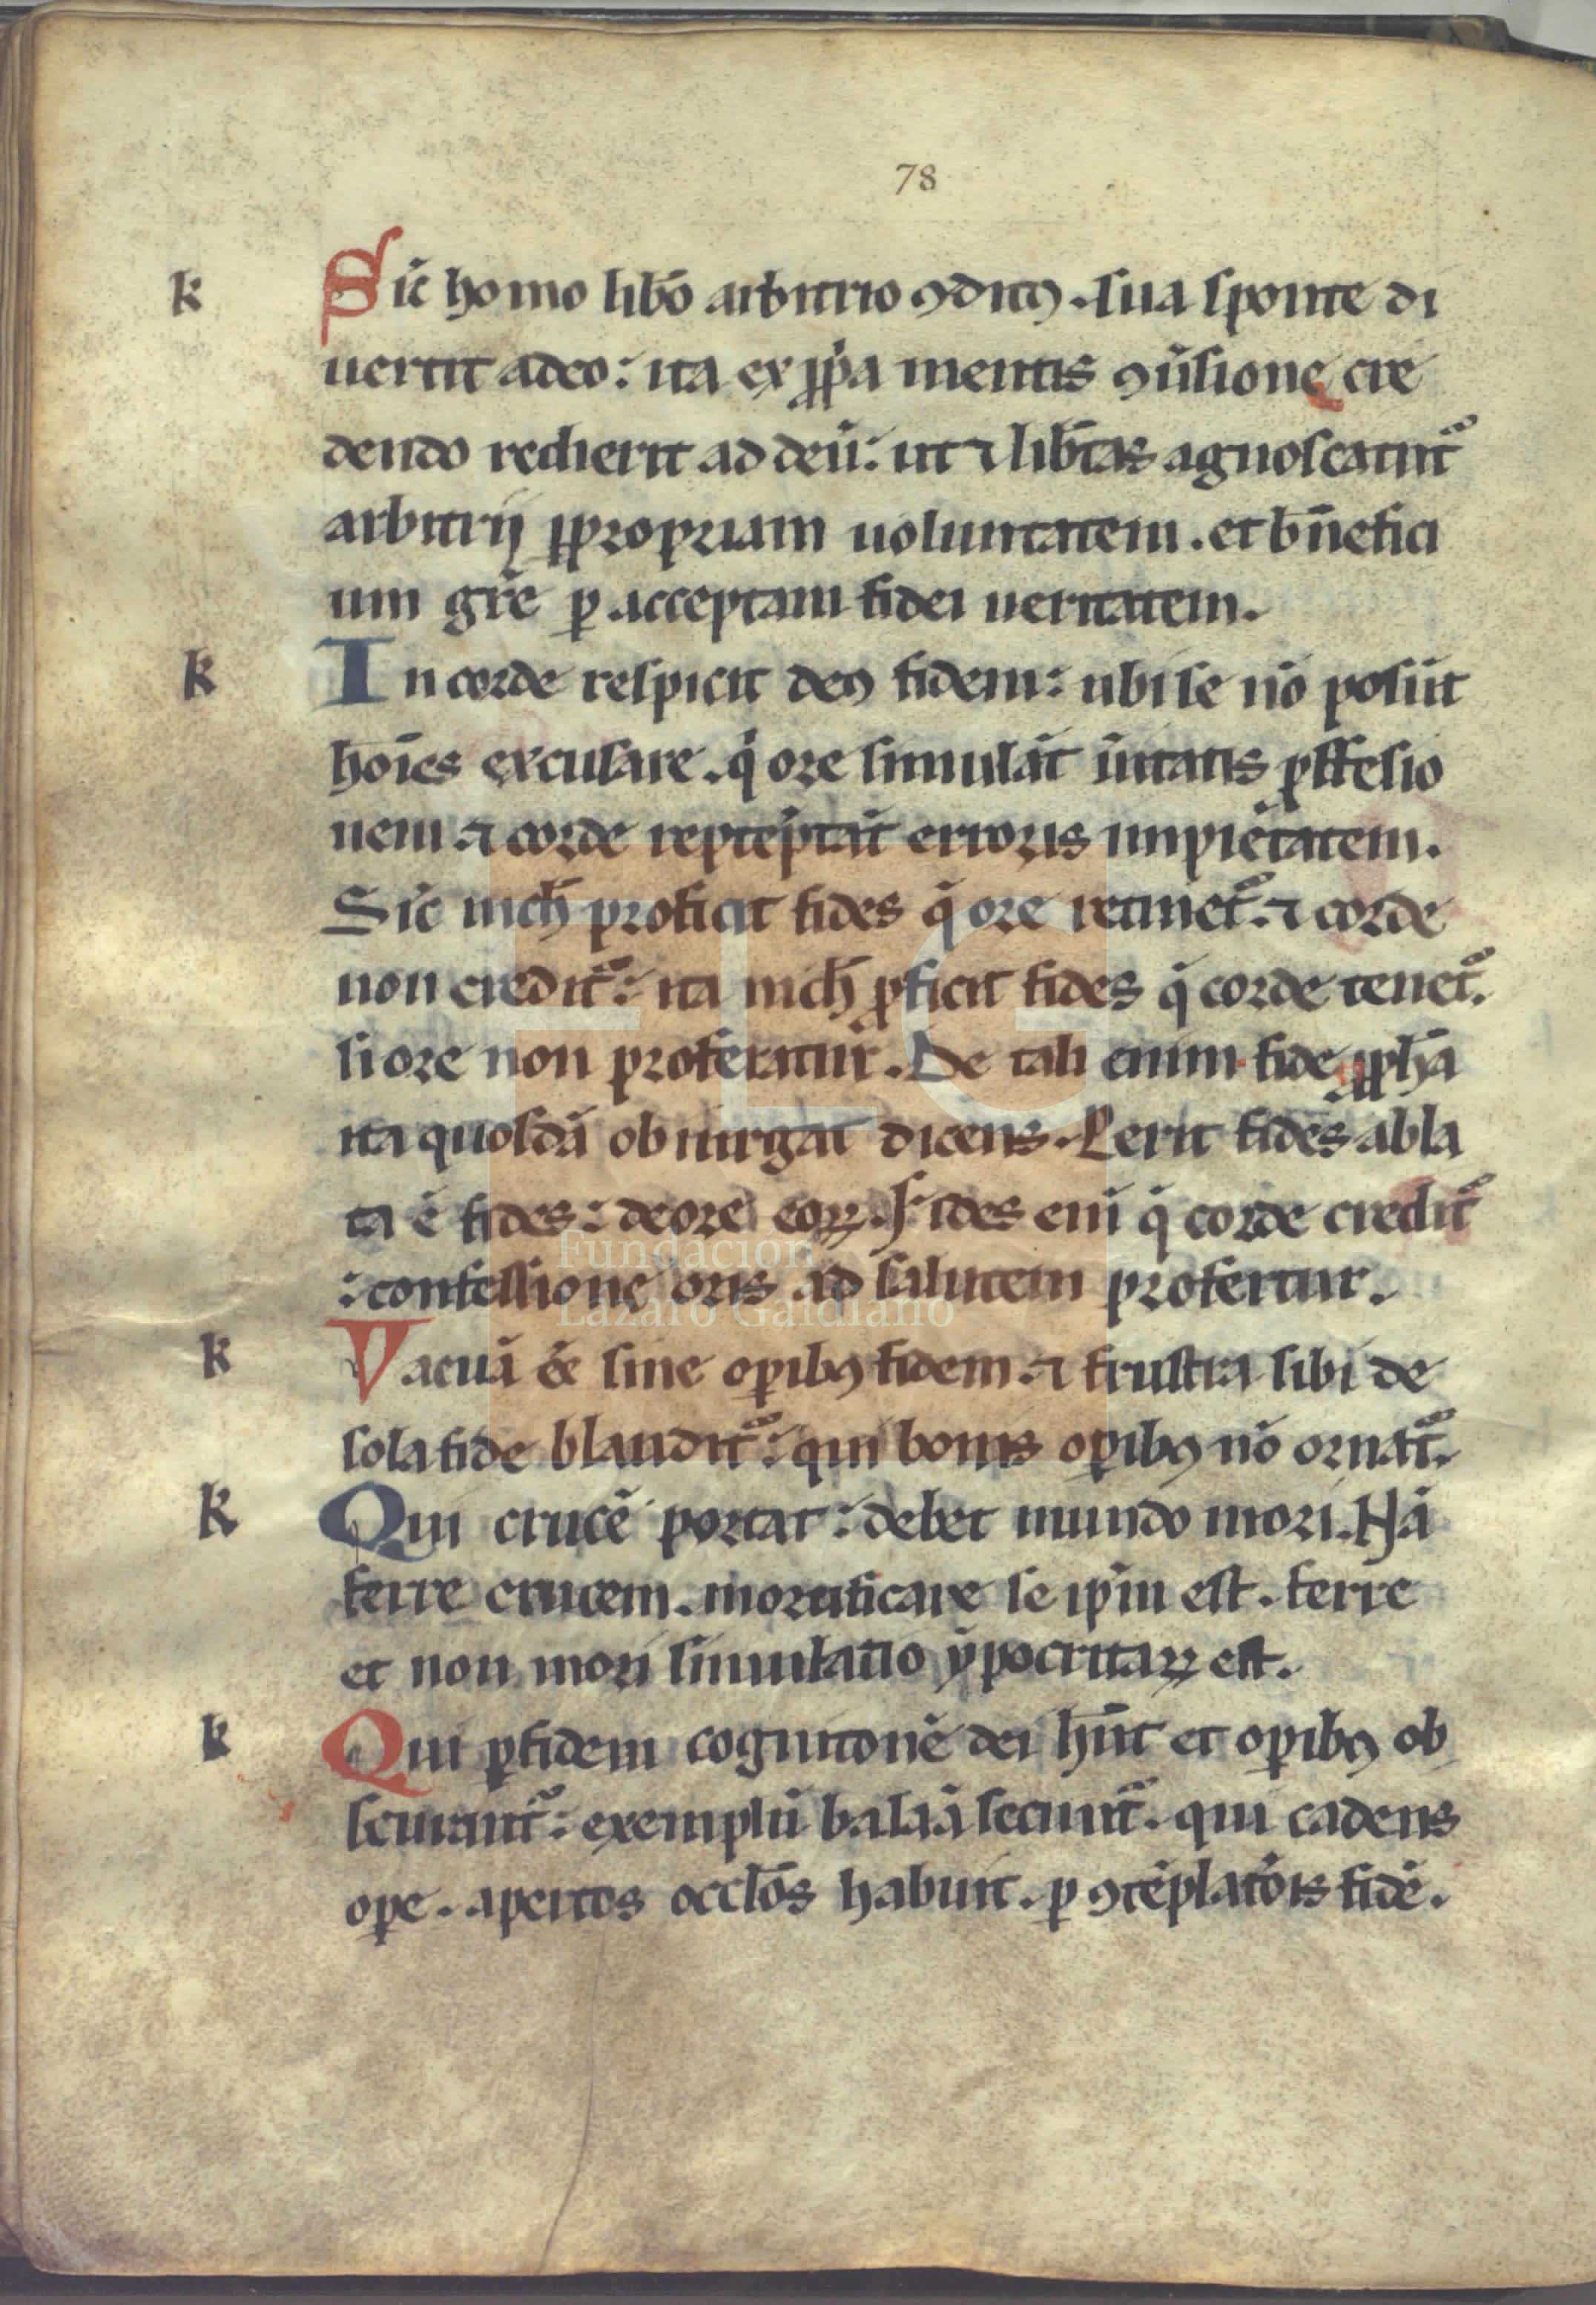 78
k Sic̄ homo lib̄o arbitrio ꝯditꝰ. sua sponte di
uertit adeo: ita ex ꝓp̄a mentis ꝯūsione cre
dendo recherit ad deū: ut ⁊ lib̄tas agnoscatur̄
arbitrij ꝓpropriam uoluntatem. et bn̄efici
um gr̄e ꝑ acceptam fidei ueritatem.
k In corde respicit deꝰ fidem: ubi se nō posūt
hoīes excusare. q̇ ore simulāt ūitatis ꝓffesio
nem ⁊ corde
erroris impietatem.
Sic̄ nich̄ proficit fides q̄ ore retinet᷑. ⁊ corde
non credit᷑: ita nich̄ ꝓficit fides q̄ corde tenet᷑.
si ore non proferatur. De tali enim fide ꝓph̄a
ita quosdā obiurgat dicens. Perit fides abla
ta ē fides: de ore eoꝝ. Fides eni̅ q̄ corde credit᷑
: confessione oris ad salutem profertur.
k Vacuā eē sine oꝑibꝰ fidem. ⁊ frustra sibi de
sola fide blandit᷑: qui bonis oꝑibꝰ nō ornat᷑.
k Qui crucē portat: debet mundo mori. Nā
ferre crucem. mortificare se ip̄m est. ferre
et non mori simulatio ẏpocritaꝝ est.
k Qui ꝑ fidem cognitonē dei hn̄t et oꝑibꝰ ob
scurant᷑: exemplū balaā secunt᷑. qui cadens
oꝑe. apertos occl̄os habuit. ꝑ ꝯtēplatōis fidē.
FLG
Fundación
Lázaro Galdiano